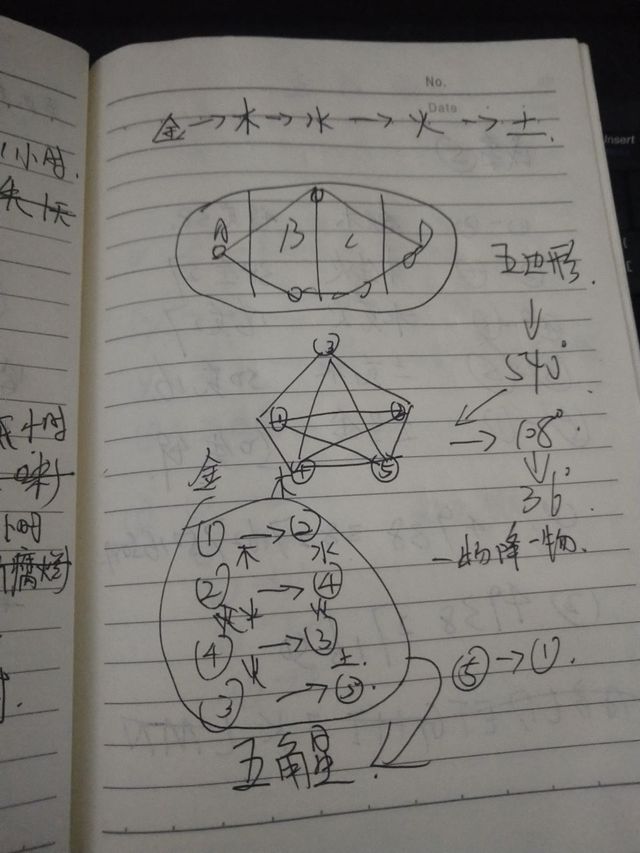 No.
Date
金→木→水→火→土
小时.
A B C D
五边形.
↓
540°
③
① ②
④ ⑤
→108°.
↓
36°
一物降一物.
小时
金 木
①→②
木 水
②→④
水 火
④→③
火 土.
③→⑤.
⑤→①.
腐烂
五角星.
Insert